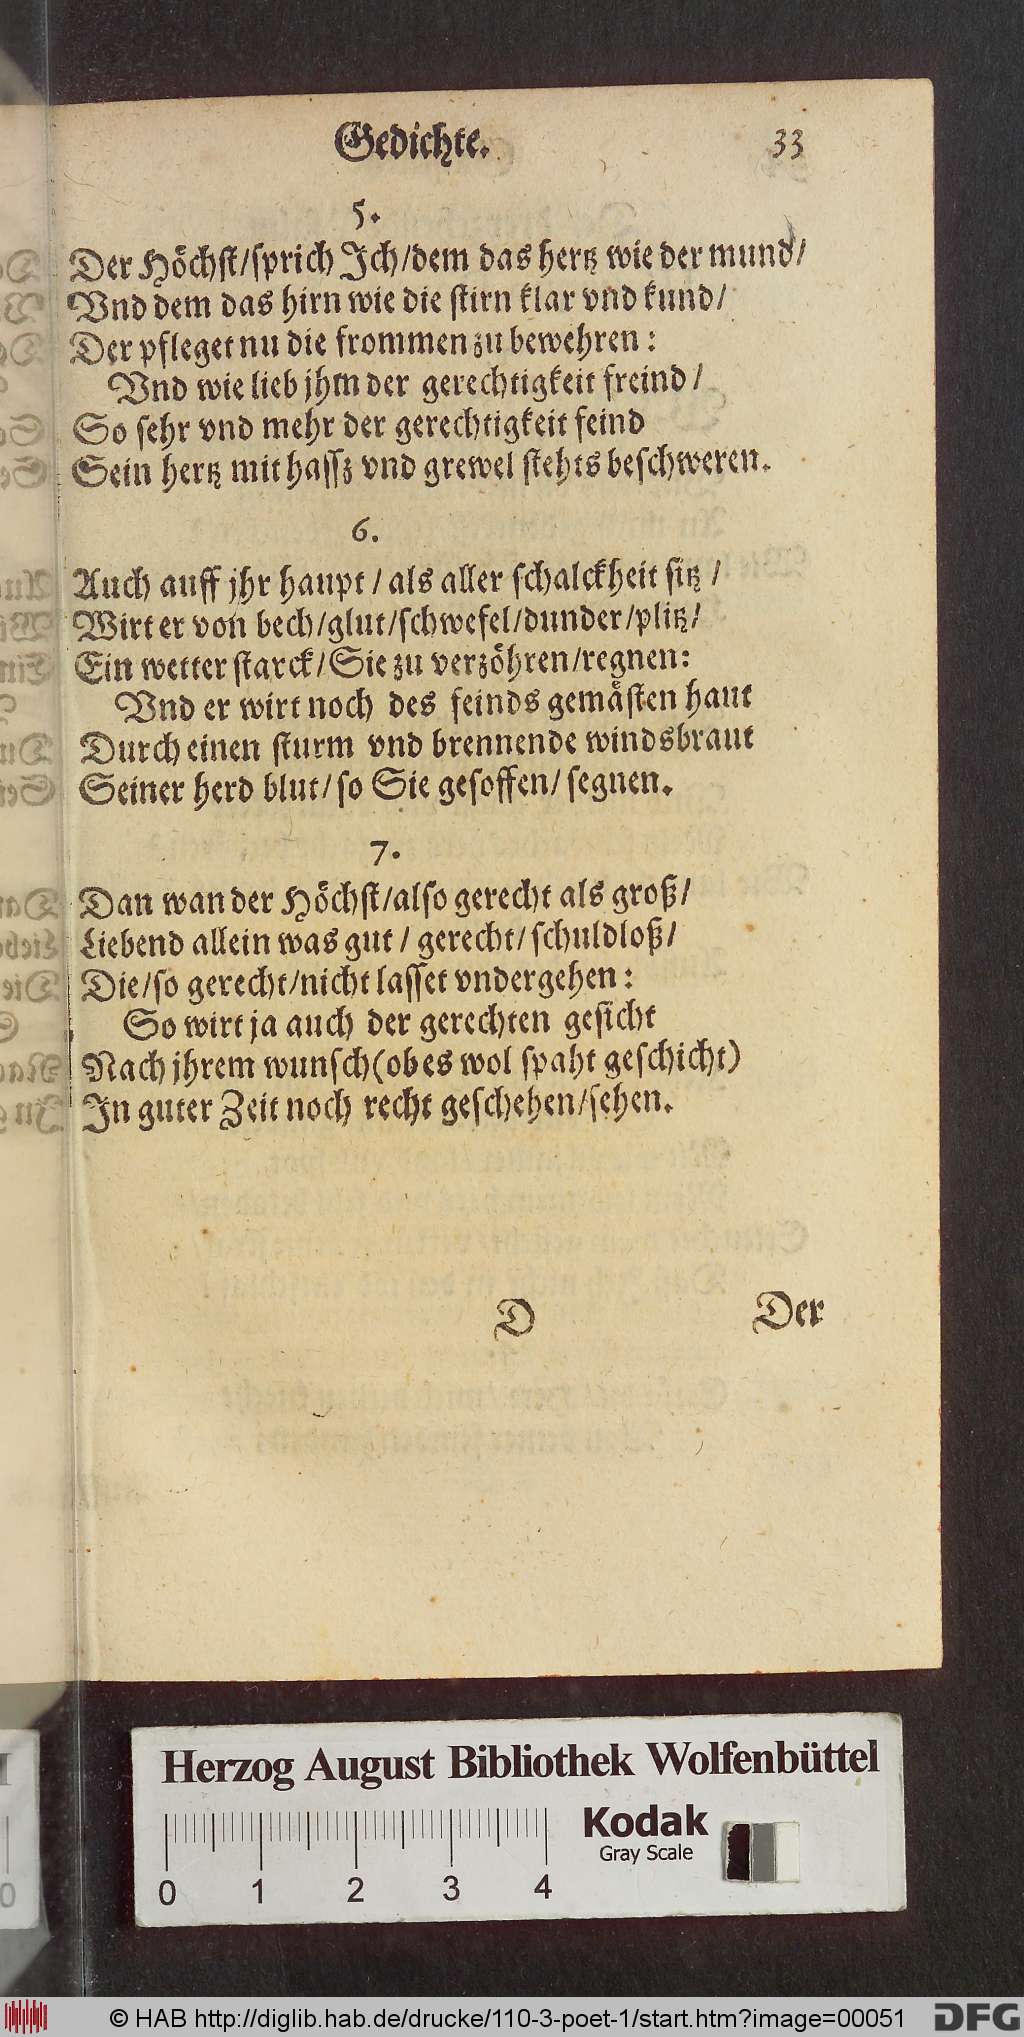 Gedichte. 33
5.
Der Höchst/sprich Ich/dem das hertz wie der mund/
Vnd dem das hirn wie die stirn klar vnd kund/
Der pfleget nu die frommen zu bewehren:
Vnd wie lieb jhm der gerechtigkeit freind/
So sehr vnd mehr der gerechtigkeit feind
Sein hertz mit hassz vnd grewel stehts beschweren.
6.
Auch auff jhr haupt/als aller schalckheit sitz/
Wirt er von bech/glut/schwefel/dunder/plitz/
Ein wetter starck/Sie zu verzöhren/regnen:
Vnd er wirt noch des feinds gemästen haut
Durch einen sturm vnd brennende windsbraut
Seiner herd blut/so Sie gesoffen/segnen.
7.
Dan wan der Höchst/also gerecht als groß/
Liebend allein was gut/gerecht/schuldloß/
Die/so gerecht/nicht lasset vndergehen:
So wirt ja auch der gerechten gesicht
Nach jhrem wunsch(ob es wol spaht geschicht)
In guter Zeit noch recht geschehen/sehen.
D Der
Herzog August Bibliothek Wolfenbüttel
Kodak
Gray Scale
0 1 2 3 4
© HAB http://diglib.hab.de/drucke/110-3-poet-1/start.htm?image=00051 DFG